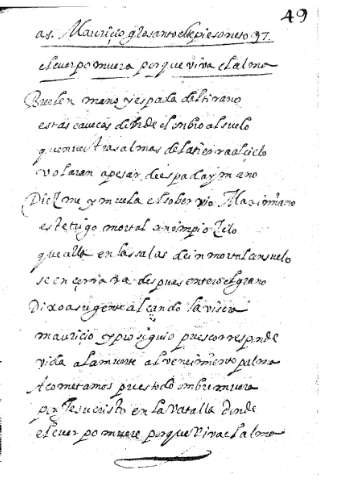 49
a s. Mauriçio gloSanto elle pie soneto 37.
el cuerpo muera porque viva el alma
Buelen mano y espada del tirano
estas caveças dende el onbro al suelo
que nuestras almas de la tierra al çielo
volaran apesar de espada y mano
Diezme y muela el sobervio Maximiano
este trigo mortal con impio zelo
que alla en las salas de inmortal consuelo
se ençerrara despues entero el grano
Dixo a su gente alçando la visera
mauriçio y prosiguio pues corresponde
vida a la muerte al vençimiento palma
Acometamos pues todo ombre muera
por Jesucristo en la vatalla donde
el cuerpo muere porque Viva el alma